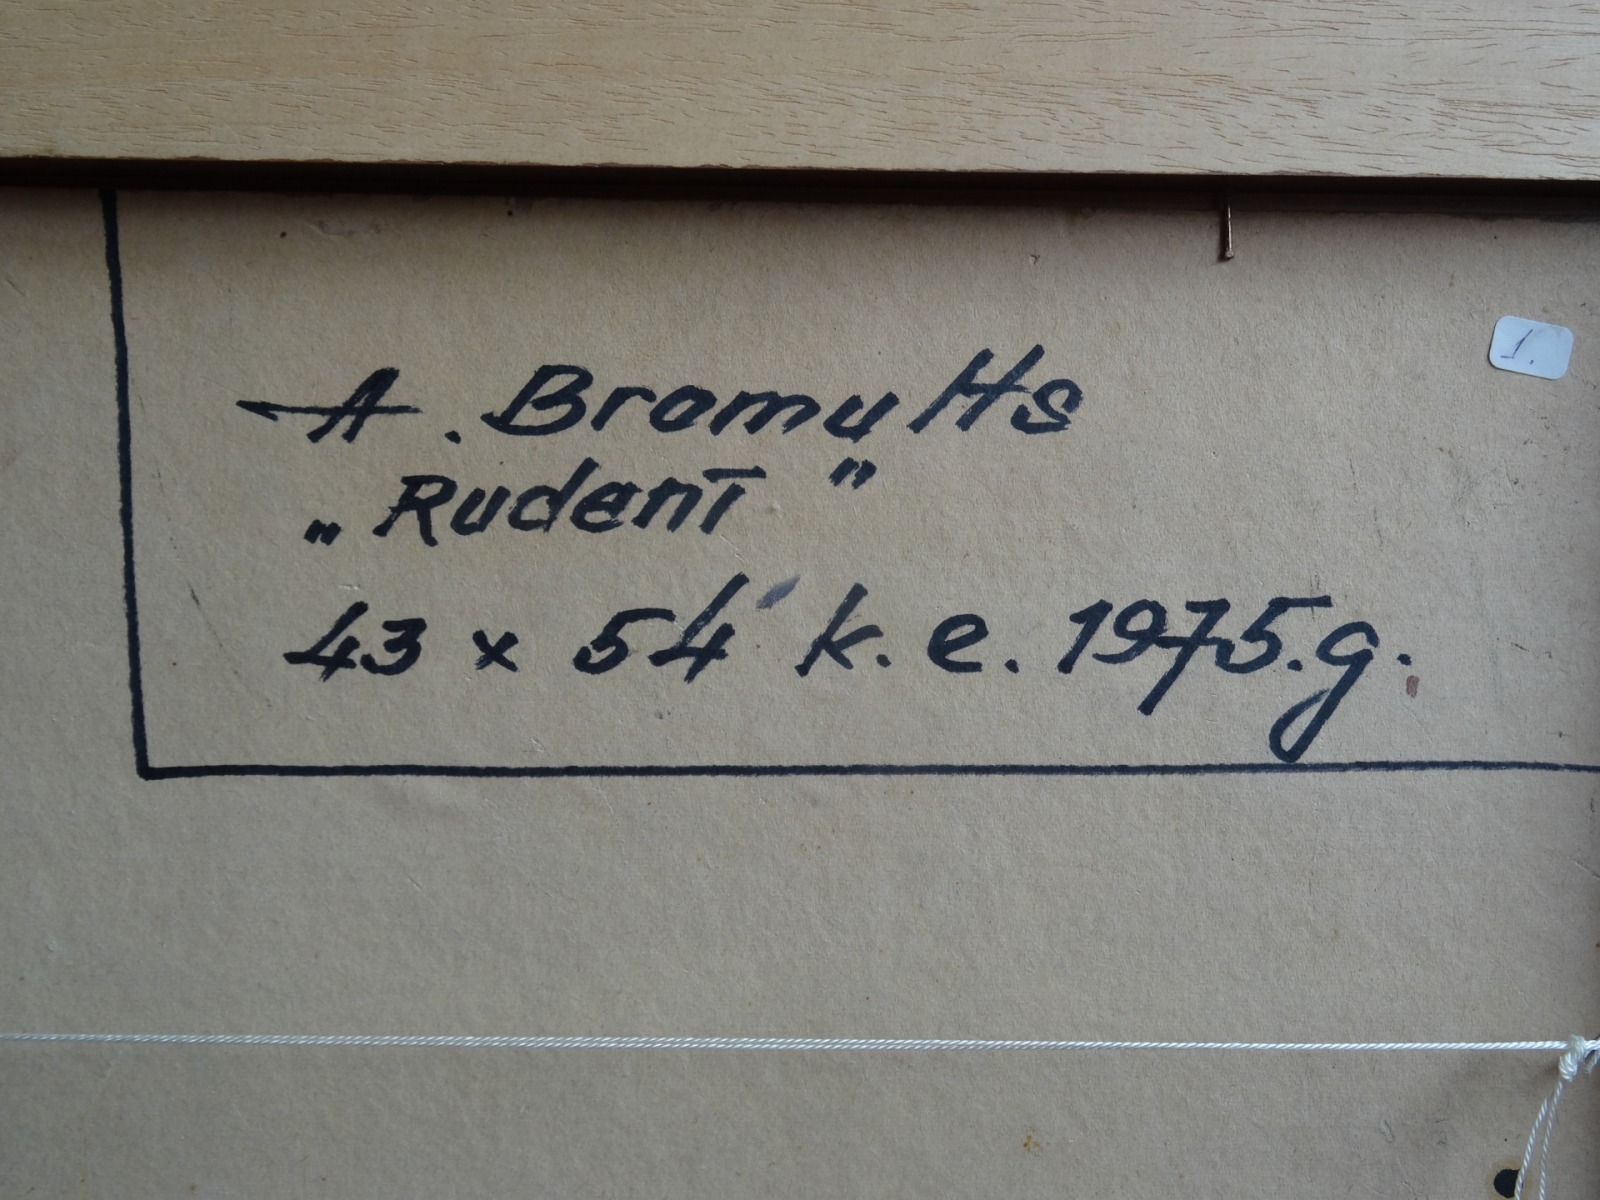 A. Bromults
„Rudenī"
43 x 54 k.e. 1975.g.
1.